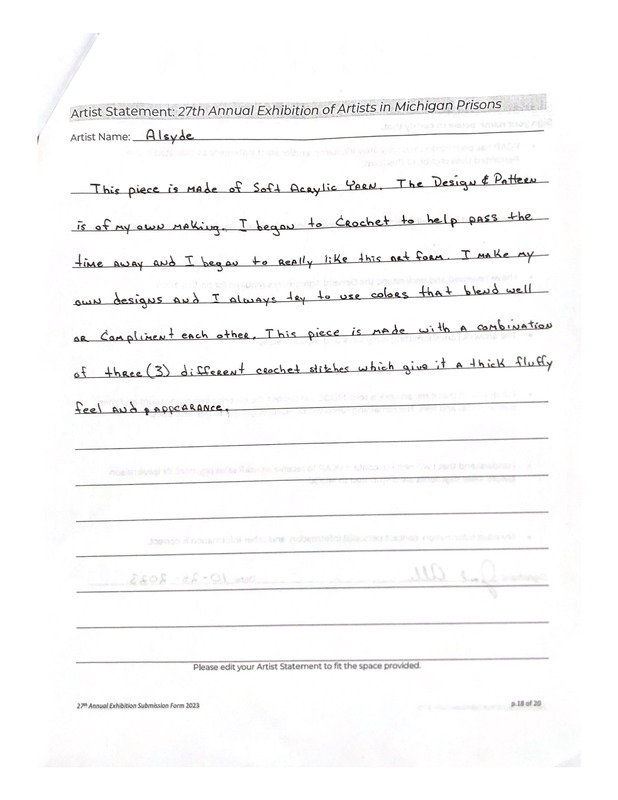 Artist Statement: 27th Annual Exhibition of Artists in Michigan Prisons
Artist Name: Alsyde
This piece is made of Soft Acrylic Yarn. The Design & Pattern
is of my own making. I began to Crochet to help pass the
time away and I began to really like this art form. I make my
own designs and I always try to use colors that blend well
or Compliment each other. This piece is made with a combination
of three (3) different crochet stitches which give it a thick fluffy
feel and appearance.
Please edit your Artist Statement to fit the space provided.
27th Annual Exhibition Submission Form 2023
p.18 of 20